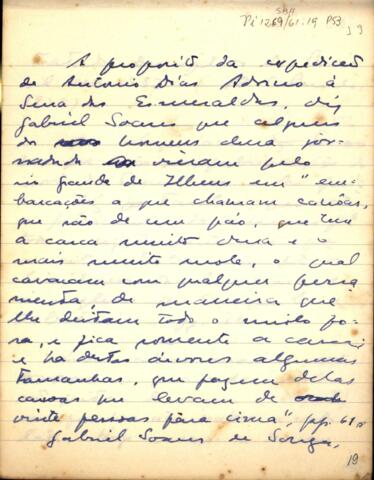 SBH
Pi 1269/61.19 P53
19
A proposito da expedicão
de Antonio Dias Adorno à
Serra das Esmeraldas, diz
Gabriel Soares que alguns
do homens dessa jor-
nada vieram pelo
rio grande de Ilheus em "em-
barcações a que chamam canôas,
que são de um páo, que tem
a casca muito dura e o
mais muito mole, o qual
cavacam com qualquer ferra
menta, de maneira que
lhe deitam todo o miolo fo-
ra, e fica somente a casca;
e ha destas árvores algumas
tamanhas, que fazem delas
canoas que levam de
vinte pessoas pàra cima", pp. 61
Gabriel Soares de Souza,
19